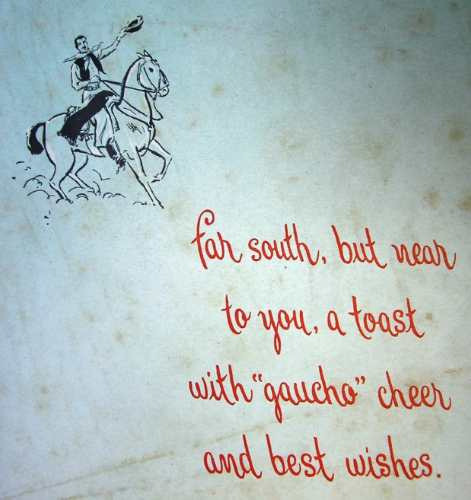 far south, but near
to you, a toast
with "gaucho" cheer
and best wishes.